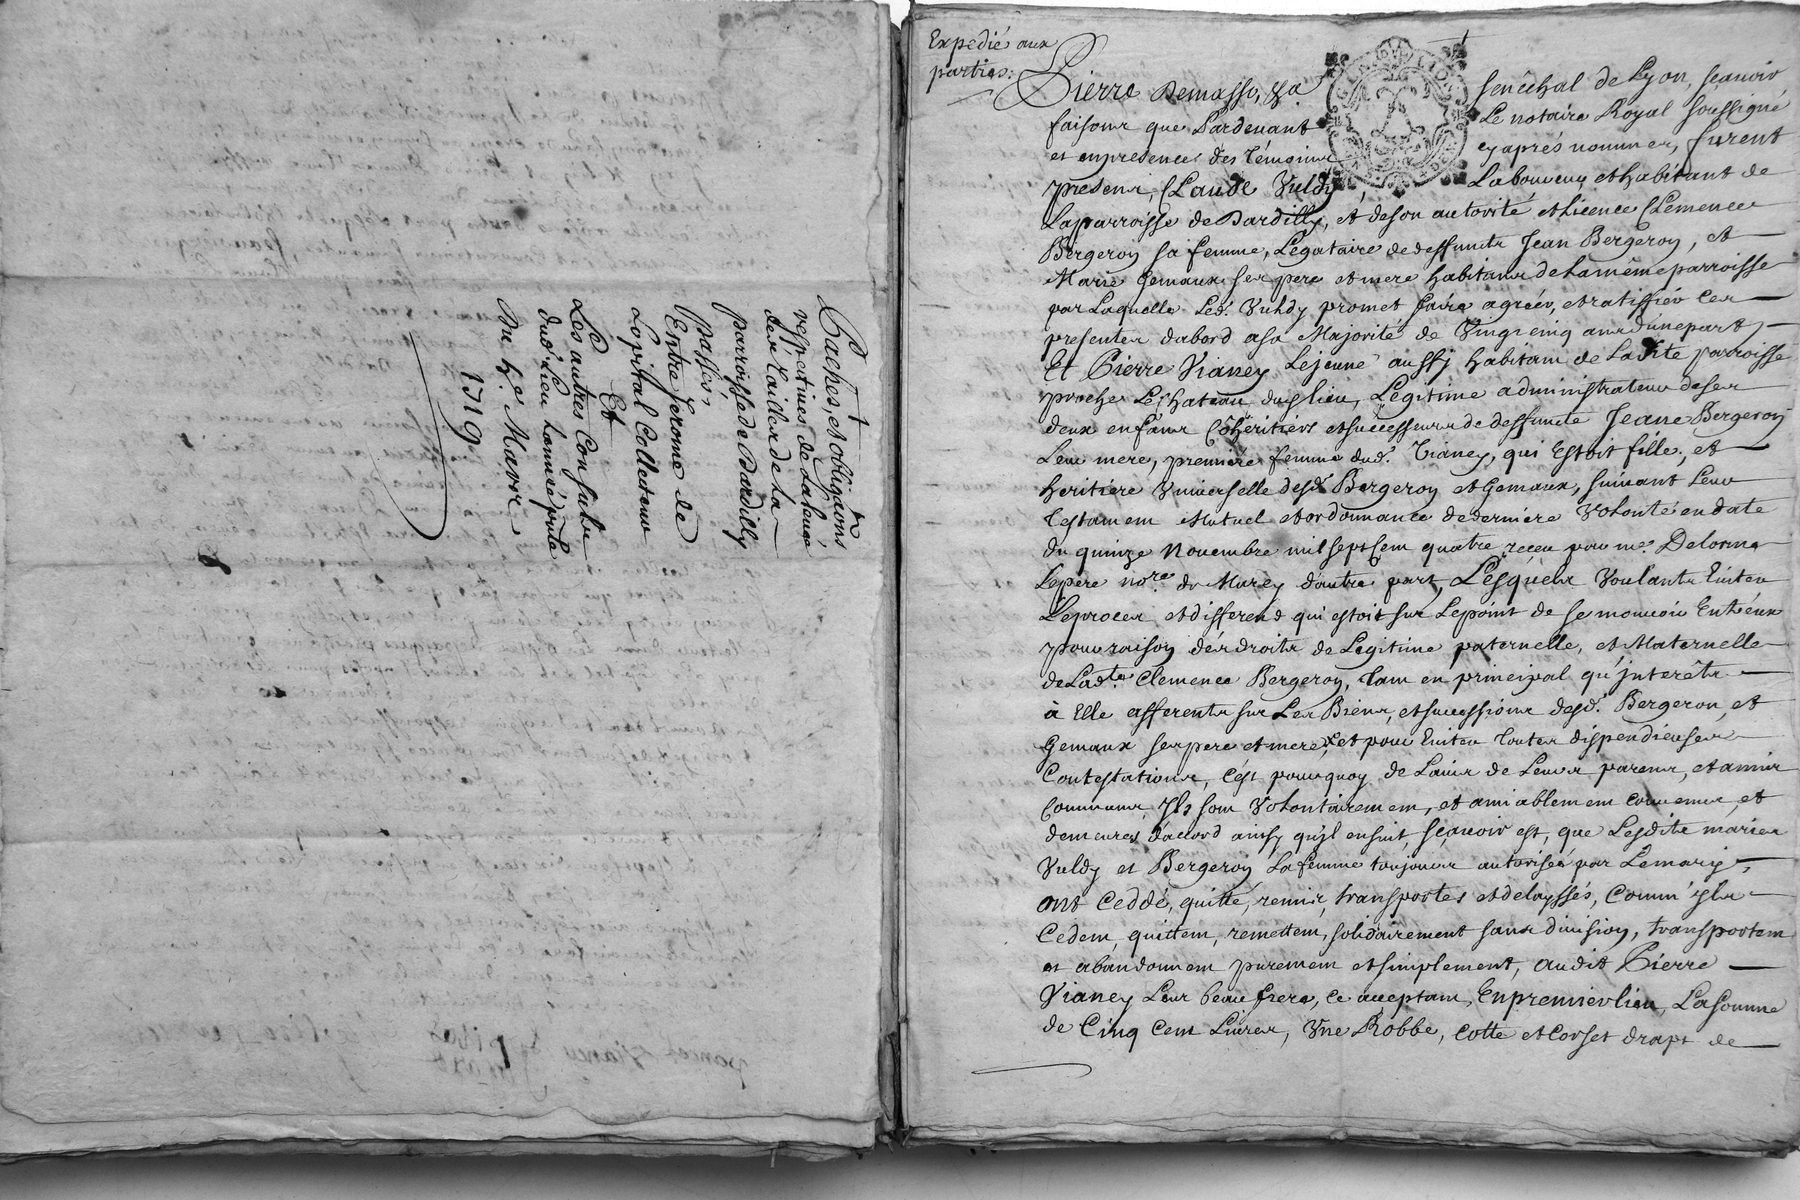 Paches, et obligaôns
respectives de La levée
des Tailles de La
parroisse de Dardilly
Passées,
Entre Jerome de
Lopital Collecteur
Et
Les autres Consuls
dud. Lieu
Du 4e. Mars
1719
Expedié aux
parties.
Pierre Demasso, &a. Senéchal de Lyon, sçavoir
faisons que Pardevant Le notaire Royal soussigné
et enpresence des Témoins cyaprés nommes, furent
presens, Claude Vuldy, Laboureur et habitant de
Laparroisse de Dardilly, et deson autorité et licence Clemence
Bergeron sa femme, Légataire de deffuncts Jean Bergeron, et
Marie Gemaux ses pere et mere habitans delamême parroisse
par Laquelle Led. Vuldy promet faire agréer, et ratiffiér ces
presentes dabord asa Majorité de Vingt cinq ans d'unepart,
Et Pierre Vianey Lejeune aussy habitant de Ladite parroisse
proche Le Chateau dud. lieu, Légitime administrateur deses
deux enfans Cohéritiers et successeurs de deffuncte Jeane Bergeron
Leur mere, premiére femme dud. Vianey, qui Estoit fille, et
heritiére Universelle desd. Bergeron et Gemaux, suivant Leur
Testament Mutuel et ordonnance dederniére Volonté en date
du quinze Novembre mil sept Cent quatre receu par me. Delorme
Lepere nore. d'autre part, Lésquels Voulants Eviter
Leprocer et differend qui estoit sur Lepoint de se mouvoir Entr'eux
pour raison dés droits de Légitime paternelle, et Maternelle
de Ladte. Clemence Bergeron, Tant en principal qu'jnterêts
à Elle afferents sur Les Biens, et successions desd. Bergeron, et
Gemaux ses pere et mere, et pour Eviter Toutes dispendieuses
Contestations, C'est pourquoy de Lavis de Leurs parens, et amis
Communs, Jls sont Volontairement, et amiablement convenus, et
demeurés d'accord ainsy qu'jl ensuit, Sçavoir est, que Lesdits mariés
Vuldy et Bergeron La femme toujours autorisée par Lemary,
ont Ceddé, quitté, remis, transportes et delayssés, Comm' jls
Cedent, quittent, remettent, solidairement sans division, transportent
et abandonnent purement et simplement, audit Pierre
Vianey Leur beau frere, ce acceptant, Enpremier lieu, La somme
de Cinq Cent Livres, Une Robbe, Cotte et Corset drapt de